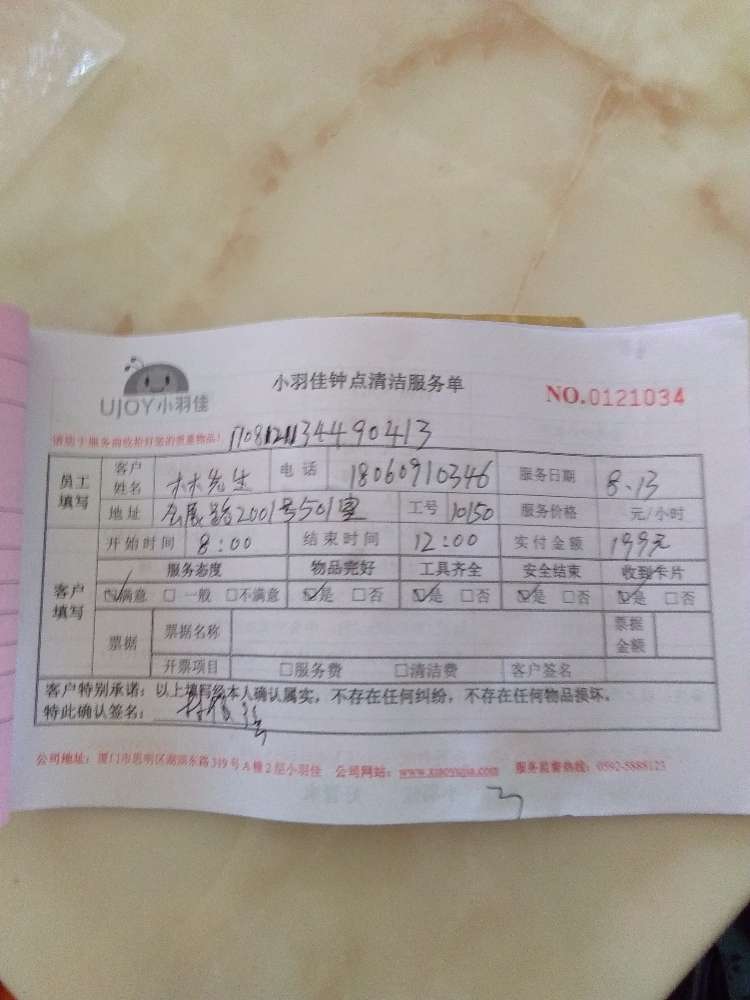 小羽佳钟点清洁服务单
UJOY小羽佳
NO.0121034
请您于服务前收拾好您的贵重物品!
员工填写 客户姓名 林先生 电话 18060910346 服务日期 8.13
地址 会展路2001号501室 工号 10150 服务价格 元/小时
客户填写 开始时间 8:00 结束时间 12:00 实付金额 199元
服务态度 物品完好 工具齐全 安全结束 收到卡片
☑满意 □一般 □不满意 ☑是 □否 ☑是 □否 ☑是 □否 ☑是 □否
票据 票据名称 票据金额
开票项目 □服务费 □清洁费 客户签名
客户特别承诺:以上填写经本人确认属实,不存在任何纠纷,不存在任何物品损坏。
特此确认签名:
公司地址:厦门市思明区湖滨东路319号A幢2层小羽佳 公司网站:www.xiaoyujia.com 服务监督热线:0592-5888123